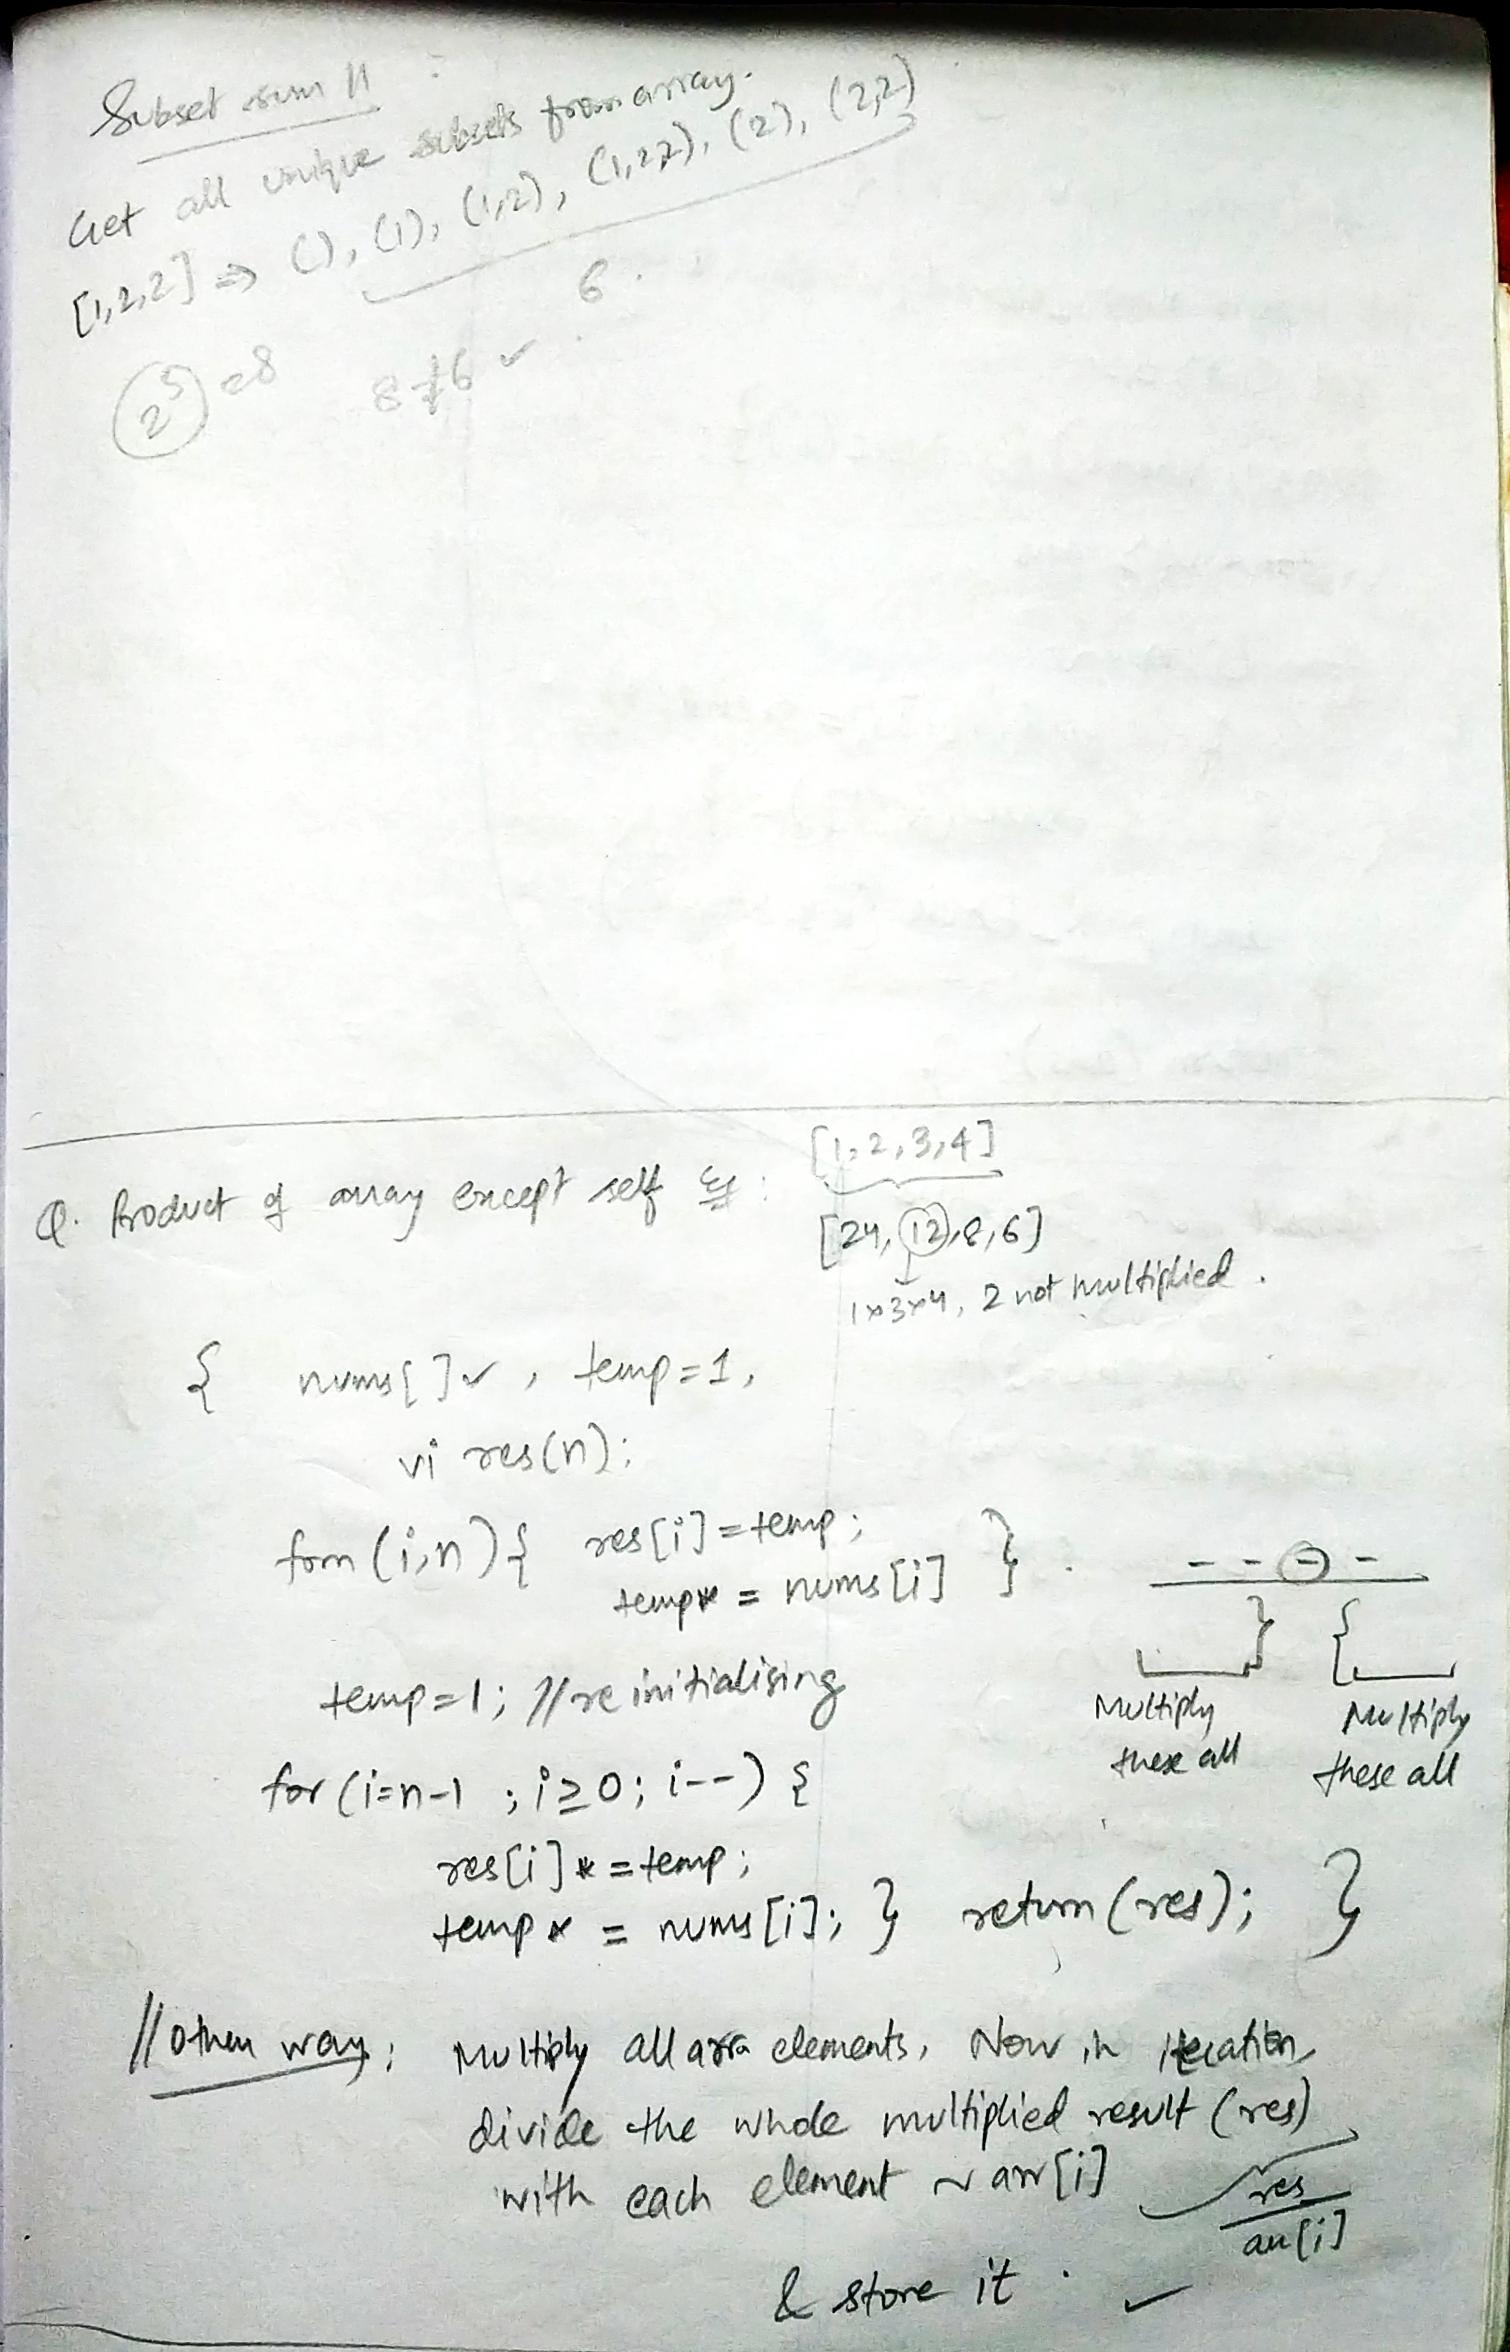 Subset sum II :
Get all unique subsets from array.
[1,2,2] => (), (1), (1,2), (1,2,2), (2), (2,2)
6.
2^3 = 8    8 ≠ 6 ✓
Q. Product of array except self Eg : [1,2,3,4]
[24, 12, 8, 6]
1x3x4, 2 not multiplied.
{ nums[ ] ✓ , temp=1,
vi res(n);
forn (i,n) { res[i] = temp;
temp* = nums[i] }
temp=1; // re initialising
for (i=n-1 ; i≥0; i--) {
res[i] * = temp;
temp * = nums[i]; } return (res); }
- - - -
Multiply these all
Multiply these all
// other way : Multiply all arra elements, Now in iteration
divide the whole multiplied result (res)
with each element ~ arr[i]
res / arr[i]
& store it . ✓